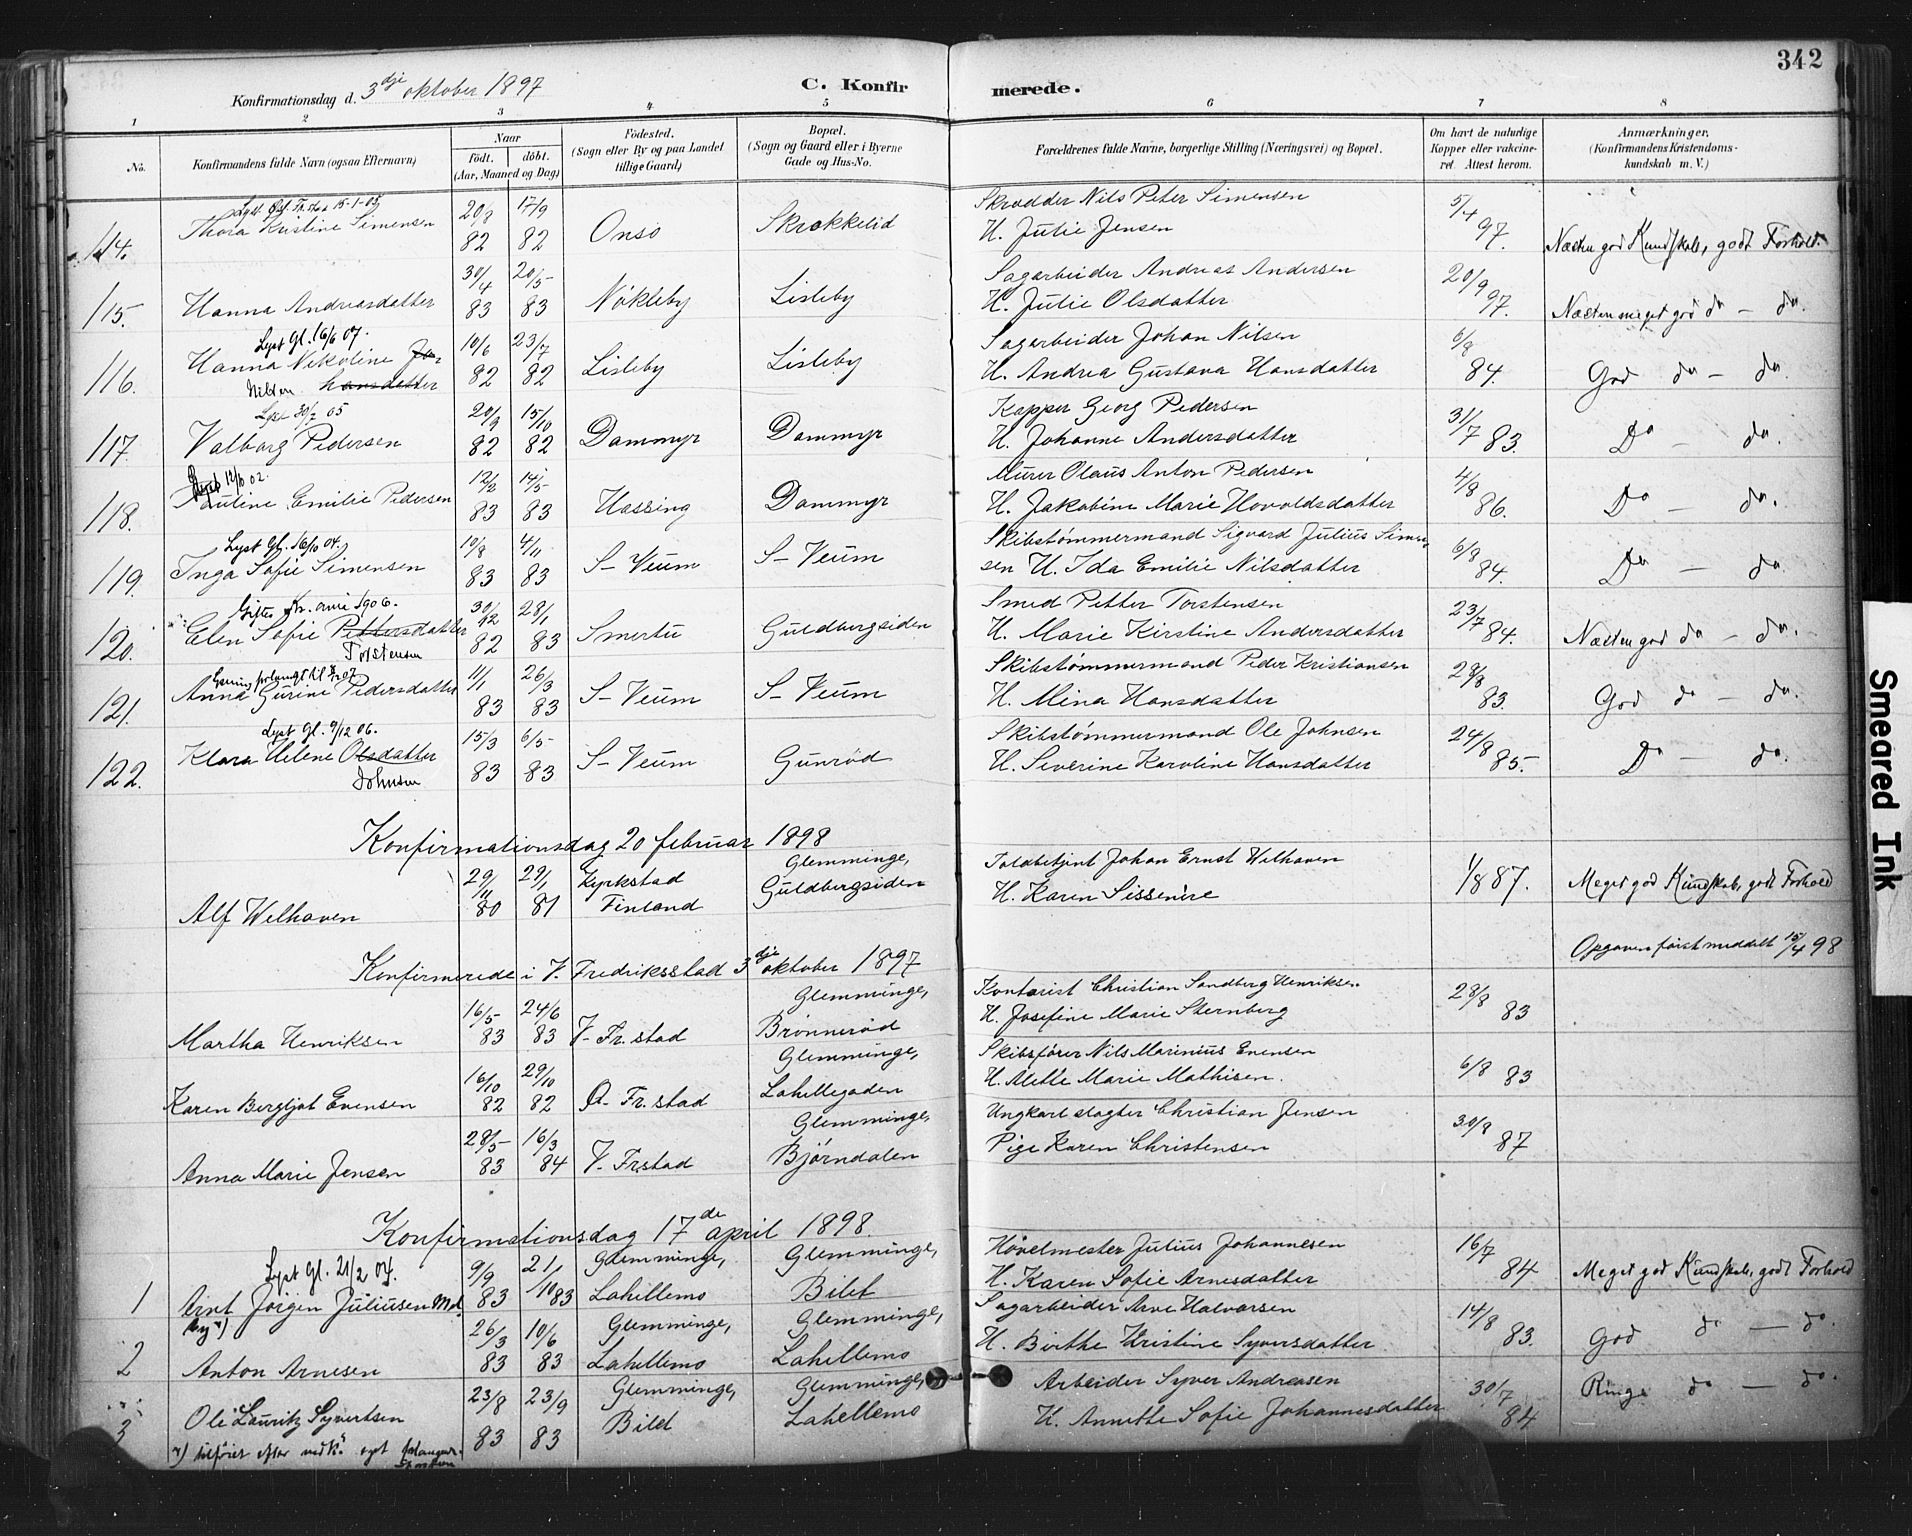 342
Konfirmationsdag d. 3 dje oktober 1897
C. Konfirmerede.
1 2 3 4 5 6 7 8
No.
Konfirmandens fulde Navn (ogsaa Efternavn)
Naar
født. døbt.
(Aar, Maaned og Dag)
Fødested.
(Sogn eller By og paa Landet
tillige Gaard)
Bopæl.
(Sogn og Gaard eller i Byerne
Gade og Hus-No.
Forældrenes fulde Navne, borgerlige Stilling (Næringsvei) og Bopæl.
Om havt de naturlige
Kopper eller vakcine-
ret. Attest herom.
Anmærkninger.
(Konfirmandens Kristendoms-
kundskab m. V.)
114. Thora Kristine Simensen 20/8 82 17/9 82 Onsø Skrøkkelid Skrædder Nils Peter Simensen
H. Julie Jensen 5/4 97. Næsten god Kundskab, godt Forhold.
115. Hanna Andreasdatter 30/4 83 20/5 83 Nøkleby Lisleby Sagarbeider Andreas Andersen
H. Julie Olsdatter 20/9 97. Næsten meget god do — do.
Lyst Gl. 16/6 07.
116. Hanna Nikoline Jo-
Nilsen hansdatter 10/6 82 23/7 82 Lisleby Lisleby Sagarbeider Johan Nilsen
H. Andrea Gustava Hansdatter 6/8 84. God do — do.
Lyst 30/7 05
117. Valborg Pedersen 20/9 82 15/10 82 Dammyr Dammyr Kapper Georg Pedersen
H. Johanne Andersdatter 31/7 83. Do — do.
118. Pauline Emilie Pedersen 12/2 83 14/5 83 Hassing Dammyr Murer Olaus Anton Pedersen
H. Jakobine Marie Hovoldsdatter 4/8 86. Do — do.
Lyst Gl. 16/10 04.
119. Inga Sofie Simensen 10/8 83 4/11 83 S- Veum S- Veum Skibstømmermand Sigvard Julius Simen-
sen H. Ida Emilie Nilsdatter 6/8 84. Do — do.
120. Elen Sofie Pettersdatter
Torstensen 30/12 82 28/1 83 Smertu Guldbergsiden Smed Petter Torstensen
H. Marie Kirstine Andersdatter 23/7 84. Næsten god do — do.
121. Anna Gurine Pedersdatter 11/1 83 26/3 83 S- Veum S- Veum Skibstømmermand Peder Kristiansen
H. Mina Hansdatter 28/8 83. God do — do.
Lyst Gl. 9/12 06.
122. Klara Helene Olsdatter
Johnsen 15/3 83 6/5 83 S- Veum Gunrød Skibstømmermand Ole Johnsen
H. Severine Karoline Hansdatter 24/8 85. Do — do.
Konfirmationsdag 20 februar 1898
Alf Welhaven 29/11 80 29/1 81 Kyrkstad
Finland Glemminge,
Guldbergsiden Toldbetjent Johan Ernst Welhaven
H. Karen Sissenere 1/8 87. Meget god Kundskab, godt Forhold
Opgaven først meddelt 15/4 98
Konfirmerede i V. Fredriksstad 3 dje oktober 1897
Martha Henriksen 16/5 83 24/6 83 V- Fr.stad Glemminge,
Brønnerød Kontorist Christian Sandberg Henriksen
H. Josefine Marie Sternberg 28/8 83
Karen Bergljot Evensen 16/10 82 29/10 82 Ø- Fr.stad Glemminge,
Lahellegaden Skibsfører Nils Marinius Evensen
H. Mette Marie Mathisen. 6/8 83
Anna Marie Jensen 28/5 83 16/3 84 V- Frstad Glemminge,
Bjørndalen Ungkarl slagter Christian Jensen
Pige Karen Christensen 30/8 87
Konfirmationsdag 17 de april 1898.
Lyst Gl. 21/2 04.
1 Arnt Jørgen Juliussen 9/9 83 21/10 83 Glemminge,
Lahellemo Glemminge,
Bilet Høvelmester Julius Johannesen
H. Karen Sofie Arnesdatter 16/7 84 Meget god Kundskab, godt Forhold
2 Anton Arnesen 26/3 83 10/6 83 Glemminge,
Lahellemo Glemminge,
Lahellemo Sagarbeider Arve Halvorsen
H. Birthe Kristine Syversdatter 14/8 83. God do — do.
3 Ole Lauritz Syvertsen 23/8 83 23/9 83 Glemminge,
Bilet Glemminge,
Lahellemo Arbeider Syver Andreasen
H. Annette Sofie Johannesdatter 30/7 84 Ringe do — do.
Smeared Ink